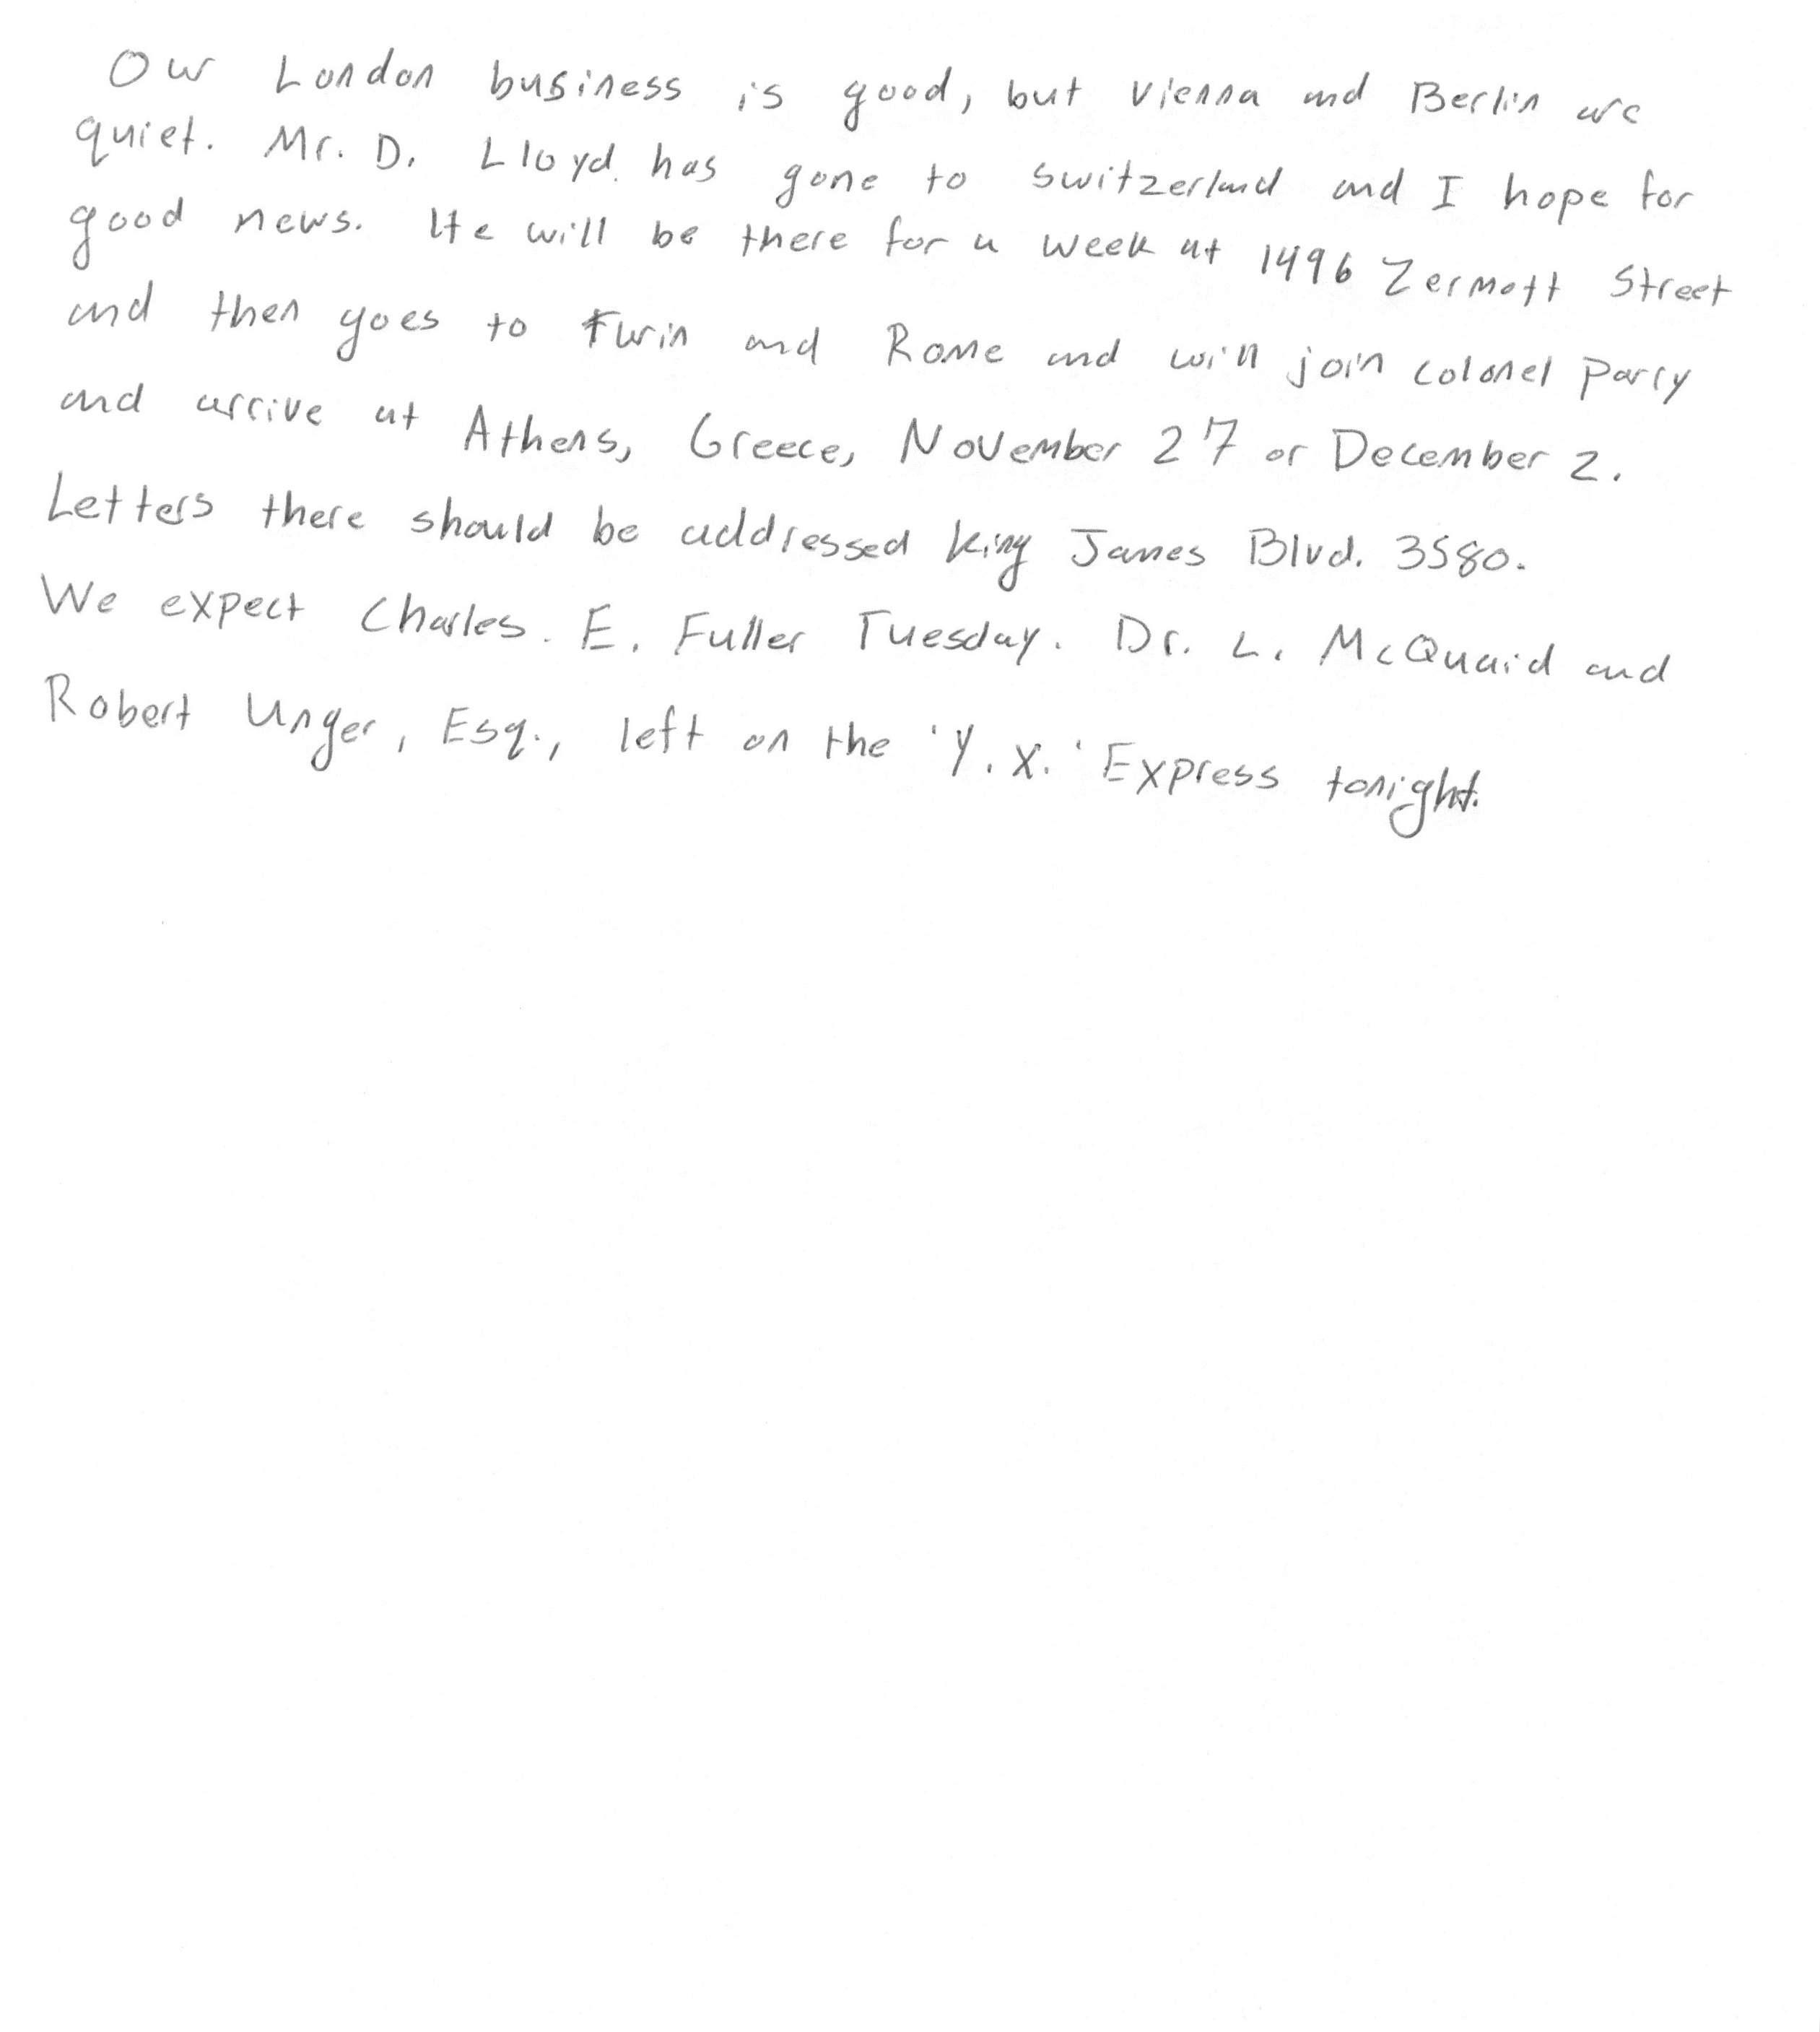 Our London business is good, but Vienna and Berlin are
quiet. Mr. D. Lloyd has gone to Switzerland and I hope for
good news. He will be there for a week at 1496 Zermott Street
and then goes to Turin and Rome and will join Colonel Parry
and arrive at Athens, Greece, November 27 or December 2.
Letters there should be addressed King James Blvd. 3580.
We expect Charles. E. Fuller Tuesday. Dr. L. McQuaid and
Robert Unger, Esq., left on the 'Y.X.' Express tonight.